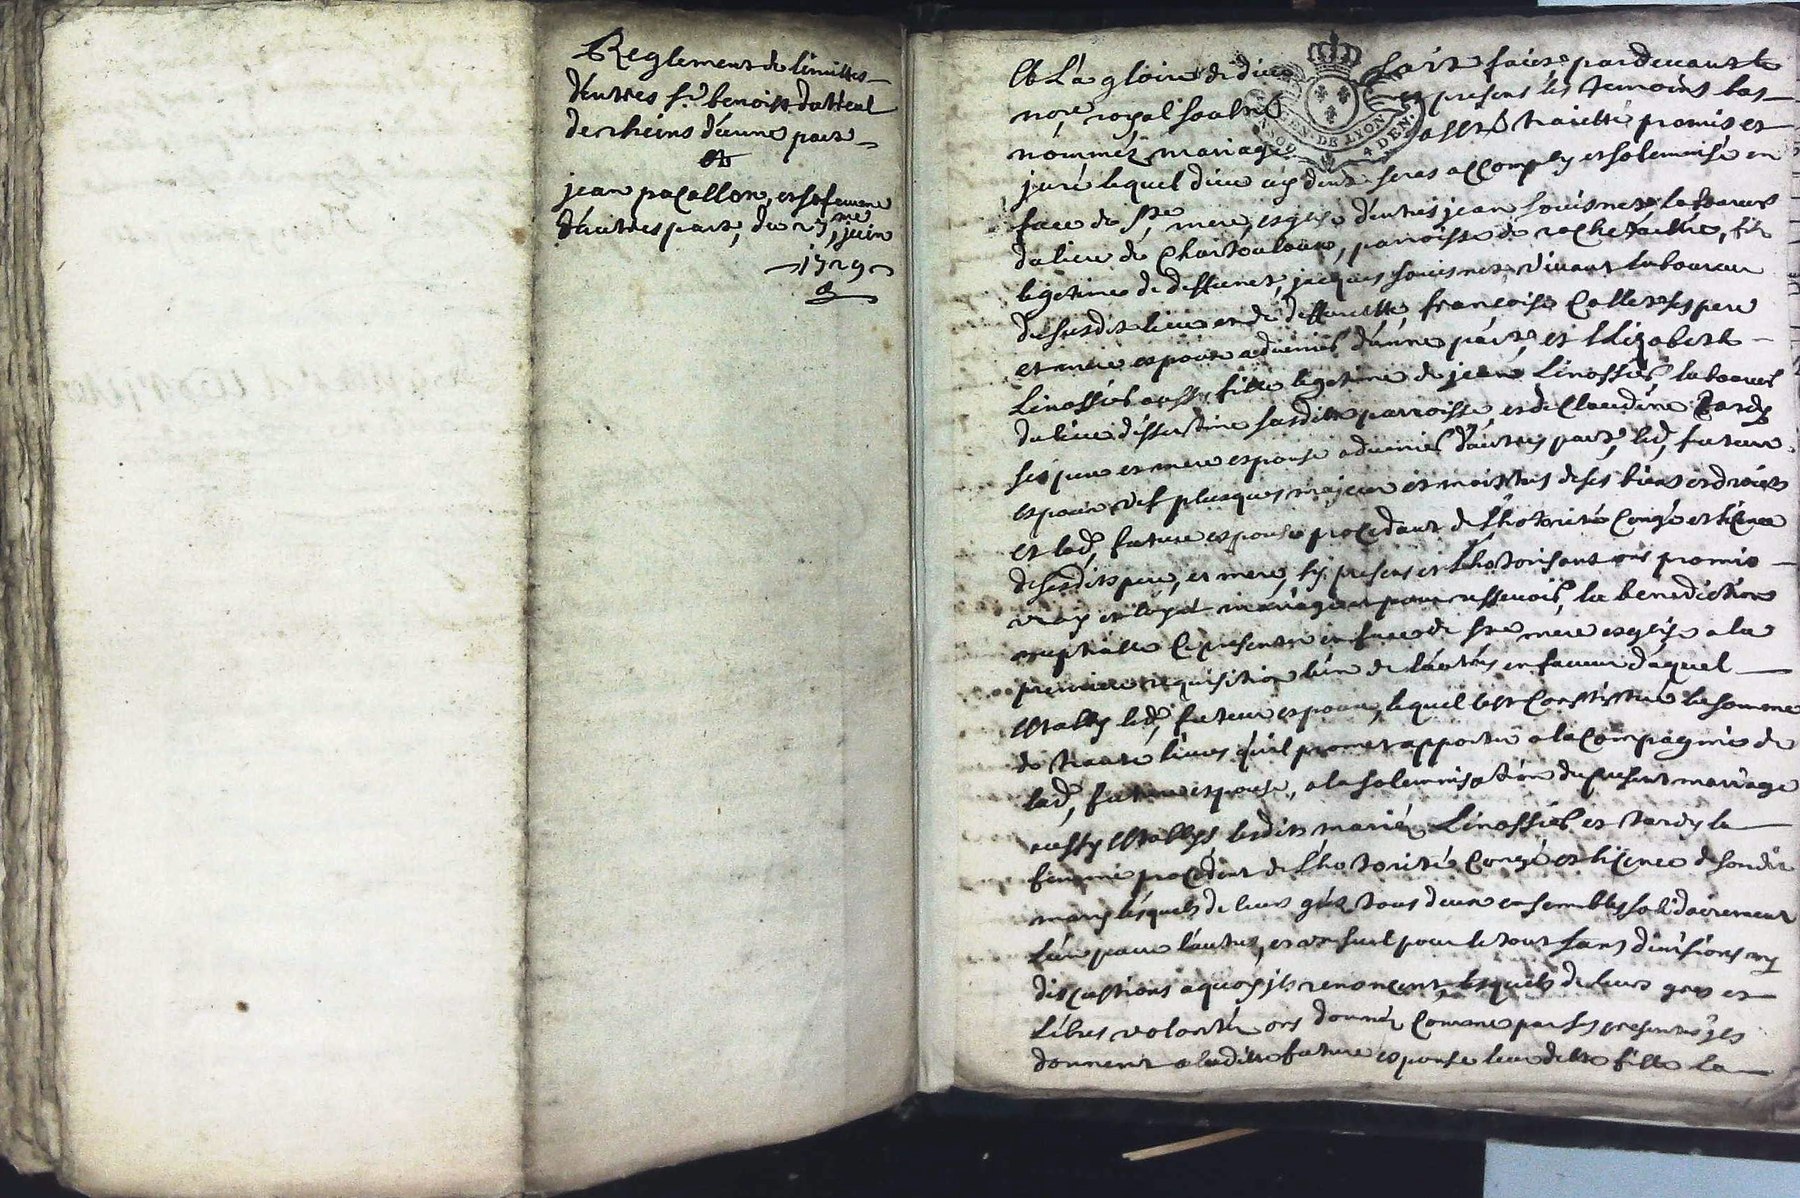 Reglement de limittes
d'entres sr. benoist dutreul
de rheins d'eune part
et
jean pacallon, et sa femme
d'autres part, du 27me juin
1729
A La gloire de dieu soit faict pardevant le
nore royal soubné et presens les temoins bas
nommés mariage a esté traitté promis et
juré lequel dieu aydant seras accomply et solemnisé en
face de ste. mere esglize d'entres jean souisnet laboureur
du lieu de Chantouloux, parroisse de rochetaillie, fils
legetime de deffunct, jacques souisnet vivant laboureur
dususdit lieu et de deffuncte françoise Collet ses pere
et mere espoux advenir d'unne part, et Elizabeth
Linossier aussy fille legetime de jean Linossier, laboureur
du lieu susditte parroisse et de Claudine Tardy
ses pere et mere espouse advenir d'autres part, led, futeur
espoux plusques majeur et maistres de ses biens et droits
et lad, future espouse procedant de l'hotorité Congé et licence
desesdits pere, et mere, sy presens et l'hotorisant ont promis
vray et loyal mariage et pour ressevoir, la benediction
nuptialle Ce presenter en face de ste mere esglize a la
premiere requisition l'un de l'autres en faveur duquel
Estably led, futeur espoux, lequel s'est Constittué la somme
de trante livres qu'il promet apporter a la Compagnie de
lad, future espouse, a la solemnisation du present mariage
aussy Establys lesdits mariés Linossier et tardy la
femme procedant de l'hotorité Congé et licence de son dit
mary lesquels de leurs grés tous deux ensembles solidairement
l'un pour l'autre, et un seul pour le tout sans divisions ny
discustions a quoy jls renoncent lesquels de leurs gres et
libres volontés ont donnés Comme par ses presentes jls
donnent a laditte future espouse leur ditte fille la
GEN. DE LYON
4 DEN.